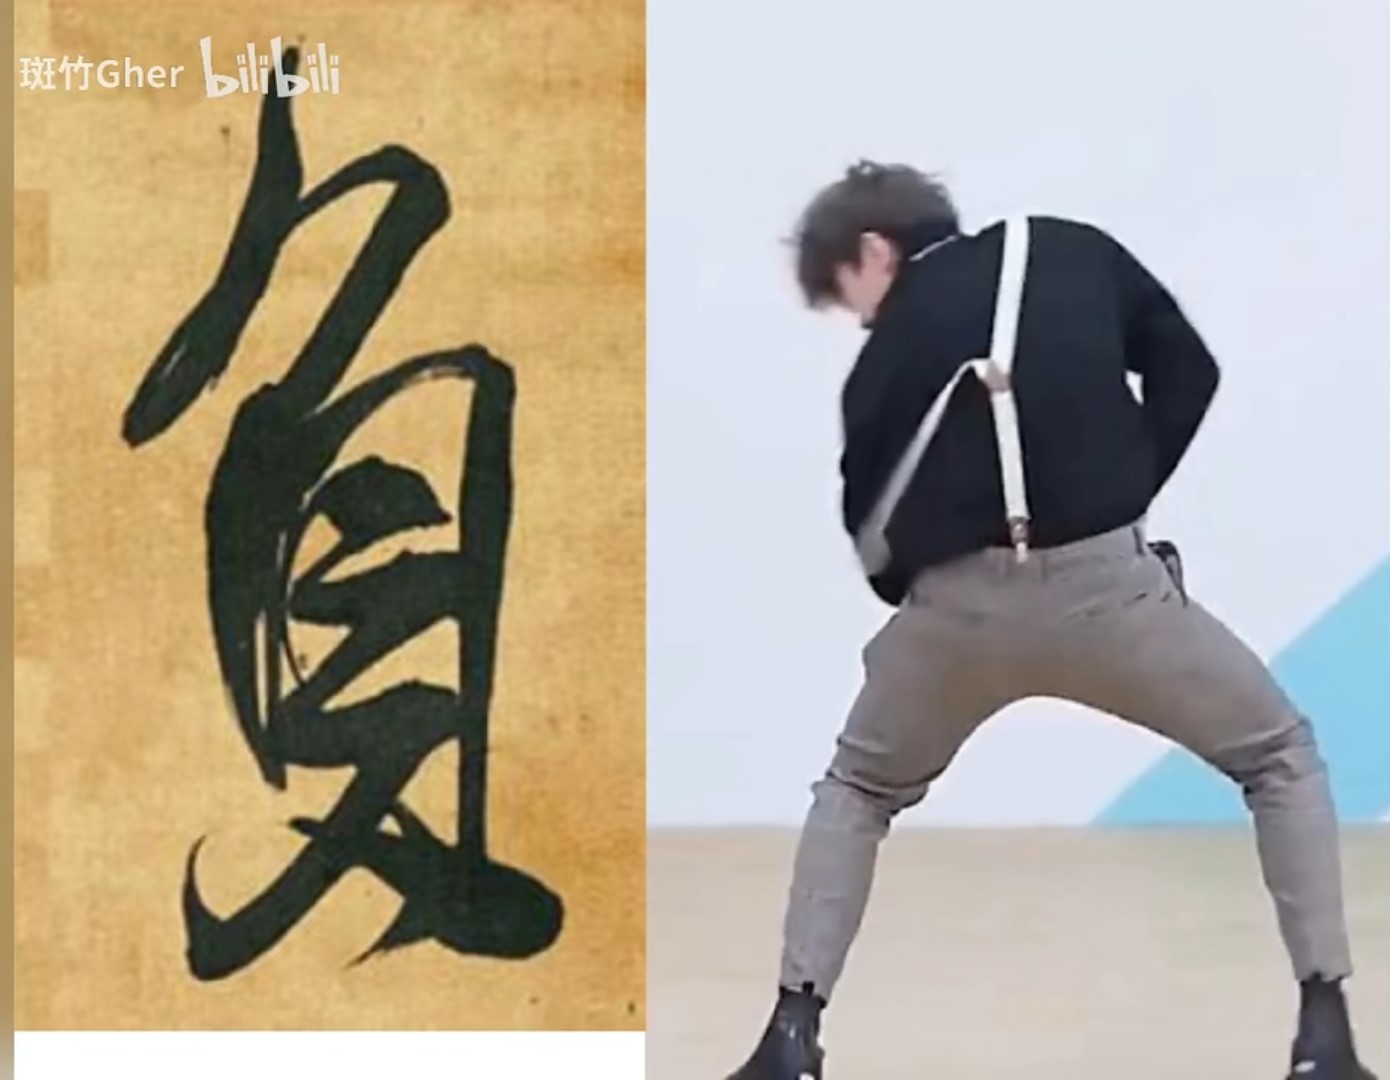 斑竹Gher bilibili
負